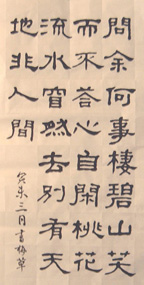 問余何事棲碧山笑
而不答心自閑桃花
流水窅然去別有天
地非人間
癸未三月書